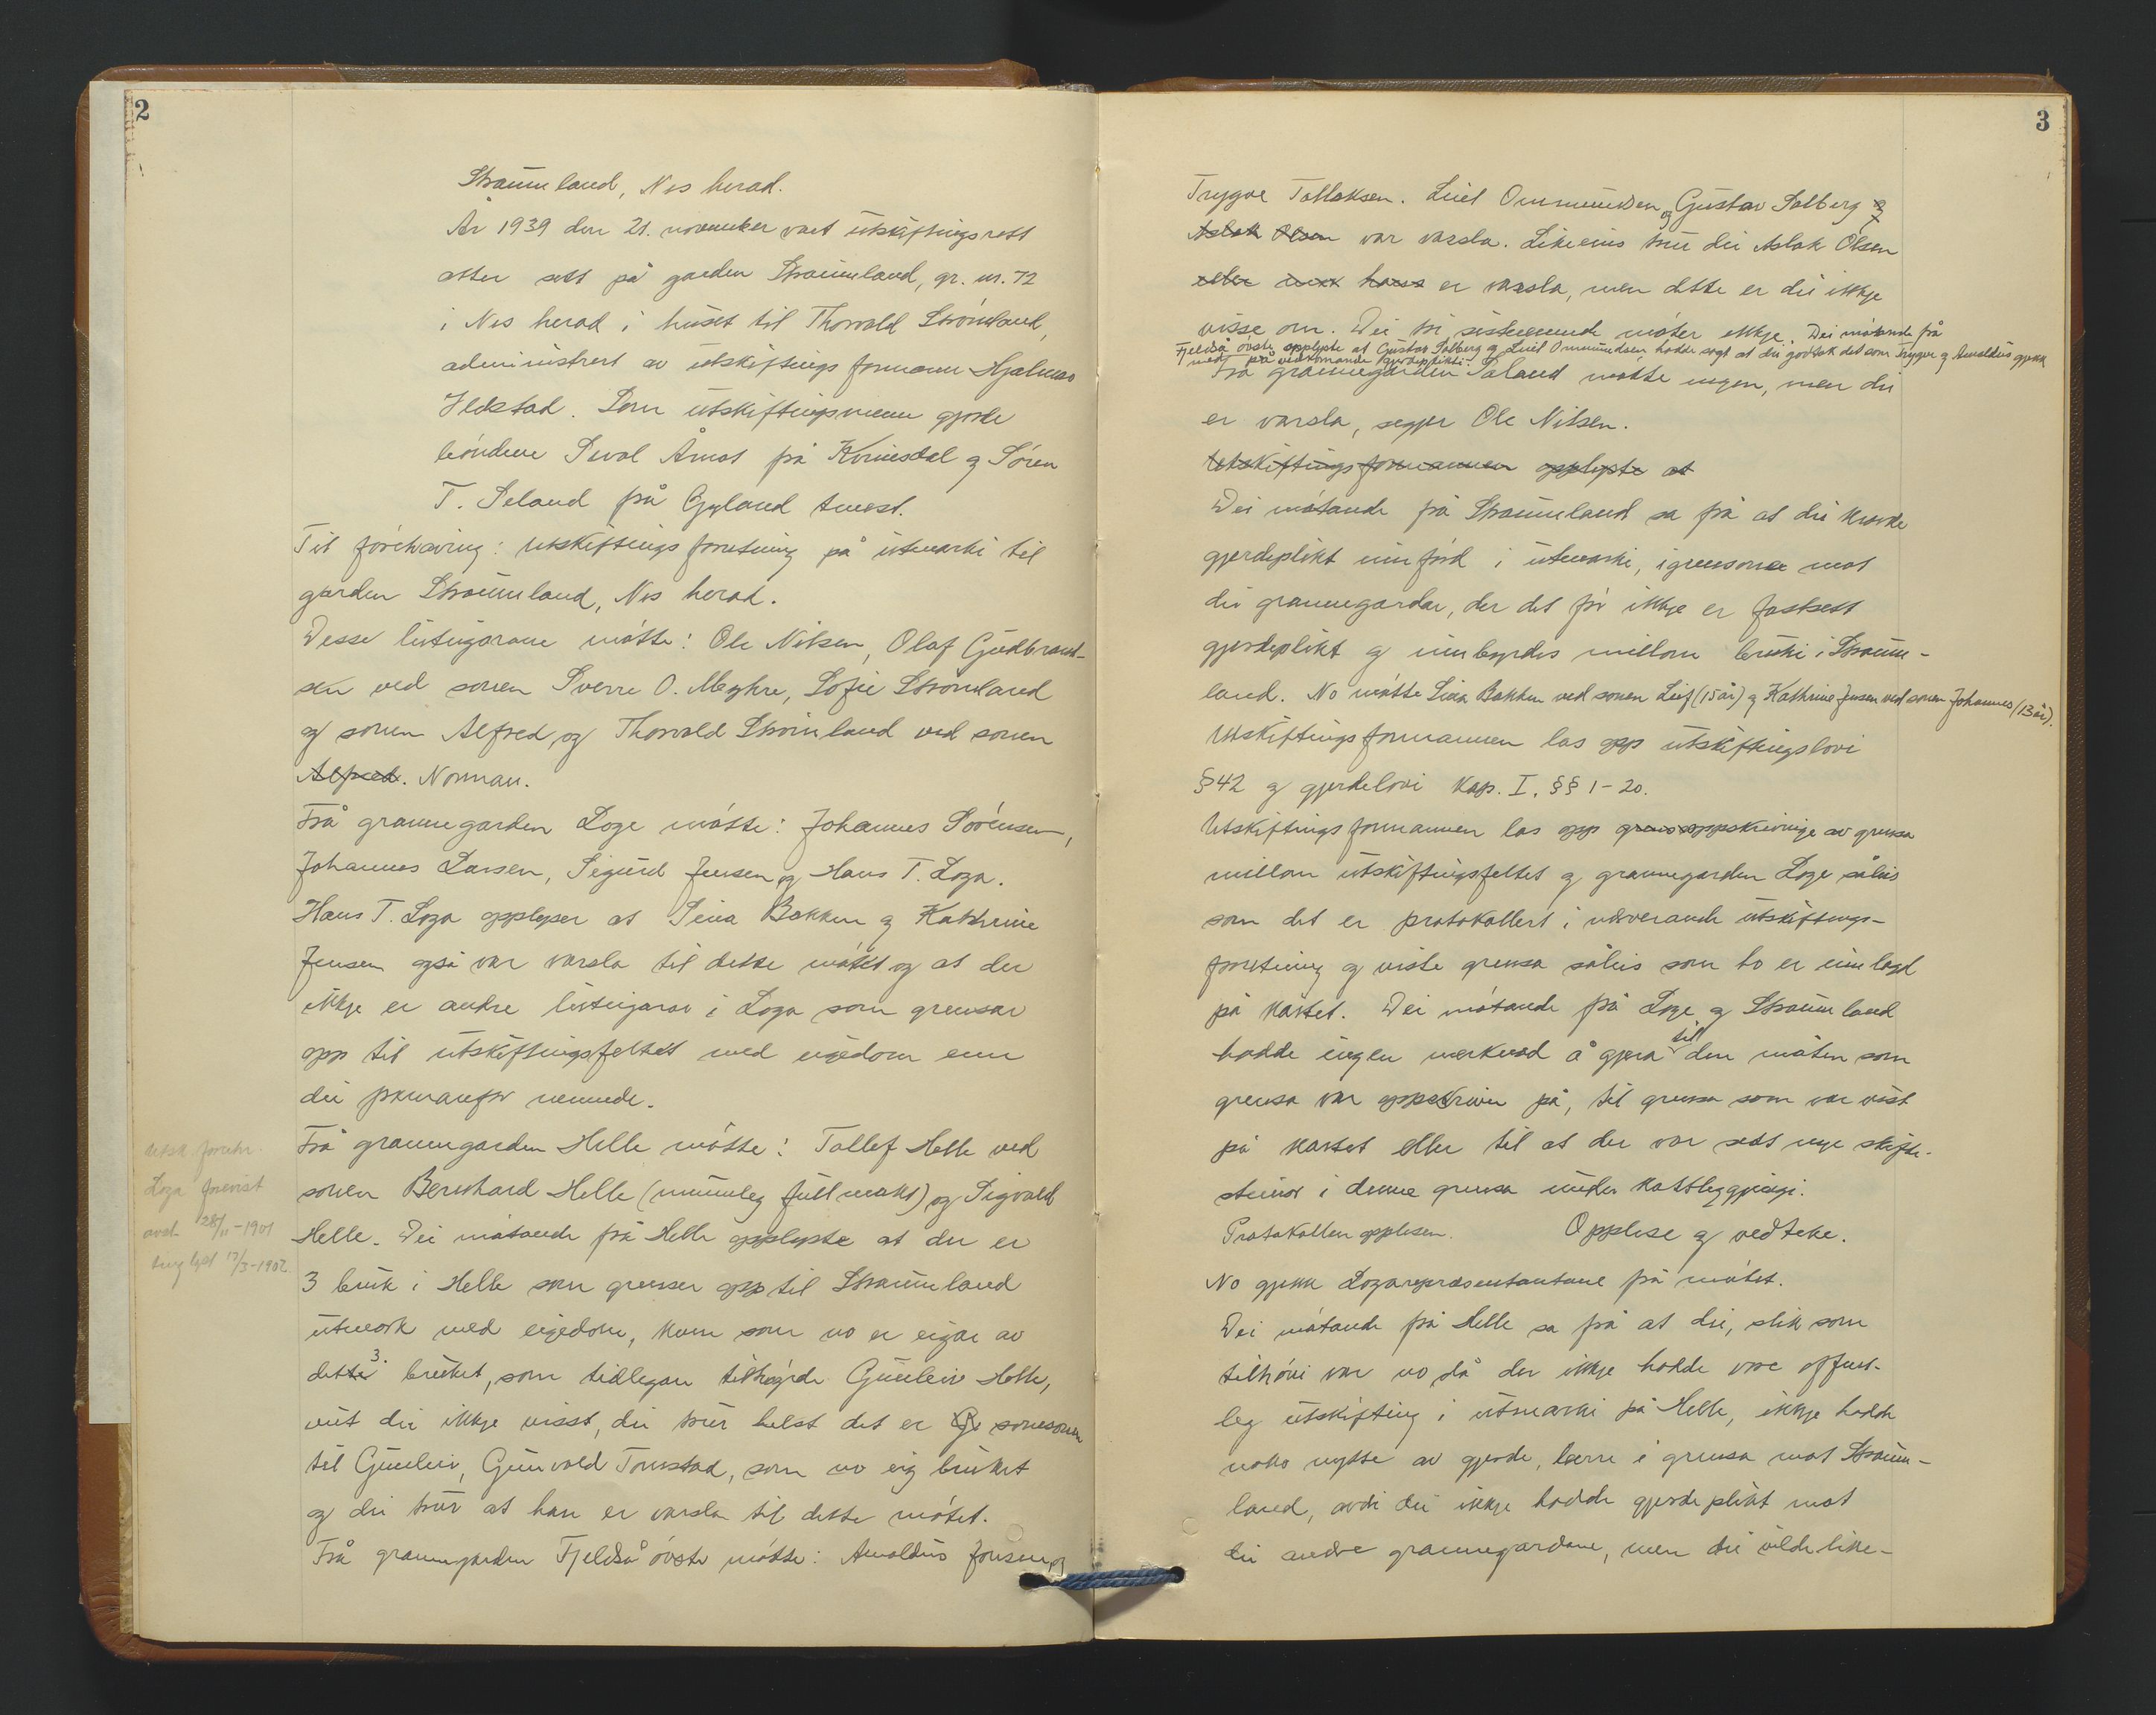 2
Straumland, Nes herad.
År 1939 den 21. november vart utskiftingsrett
atter sett på garden Straumland, gr. nr. 72
i Nes herad i huset til Thorvald Strömland,
administrert av utskiftingsformann Hjalmar
Jedstad. Som utskiftingsmenn gjorde
böndene Sivol Åmot frå Kvinesdal og Sören
T. Seland frå Gyland tenest.
Til förehaving: Utskiftingsforretning på utmarki til
garden Straumland, Nes herad.
Desse luteigarane mötte: Ole Nilsen, Olaf Gudbrand-
sen ved sonen Sverre O. Meghre, Sofie Strömland
og sonen Alfred og Thorvald Strömland ved sonen
Alfred. Norman.
Frå grannegarden Loge mötte: Johannes Sörensen,
Johannes Larsen, Sigurd Jensen og Hans T. Loga.
Hans T. Loga opplyser at Sina Bakken og Kathrine
Jensen også var varsla til dette mötet og at der
ikkje er andre luteigarar i Loga som grensar
opp til utskiftingsfeltet med eigedom enn
dei framanfor nemnde.
Frå grannegarden Helle mötte: Tollef Helle ved
sonen Bernhard Helle (munnleg fullmakt) og Sigvald
Helle. Dei mötande frå Helle opplyste at der er
3 bruk i Helle som grenser opp til Straumland
utmark med eigedom, kven som no er eigar av
dette 3. bruket, som tidlegare tilhöyrde Gunleiv Helle,
veit dei ikkje visst, dei trur helst det er sonesonen
til Gunleiv, Gunvald Tonstad, som no eig bruket
og dei trur at han er varsla til dette mötet.
Frå grannegarden Fjeldså övste mötte: Arnoldus Jonsen og
Utsk. forretn.
Loga frenst
avsl. 28/11-1901
tinglyst 17/3-1902
3
Trygve Tollaksen. Luel Ommundsen og Gustav Salberg og
Aslak Olsen var varsla. Likeeins trur dei Aslak Olsen
eller hans er varsla, men dette er dei ikkje
visse om. Dei tri sistnemnde möter ikkje. Dei mötande frå
Fjeldså övste opplyste at Gustav Salberg og Luel Ommundsen hadde sagt at dei godtok det som Trygve og Arnoldus gjekk
med på vedkomande gjerdeplikti.
Frå grannegarden Saland mötte ingen, men dei
er varsla, segjer Ole Nilsen.
Utskiftingsformannen opplyste at
Dei mötande frå Straumland sa frå at dei kravde
gjerdeplikt innförd i utmarki, i grensone mot
dei grannegardar, der det för ikkje er fastsett
gjerdeplikt og innbyrdes millom bruki i Straum-
land. No mötte Sina Bakken ved sonen Leif (15 år) og Kathrine Jensen ved sonen Johannes (13 år).
Utskiftingsformannen las opp utskiftingslovi
§42 og gjerdelovi kap. I. §§ 1-20.
Utskiftingsformannen las opp grensoppskrivinge av grensa
millom utskiftingsfeltet og grannegarden Loge såleis
som det er protokollert i närverande utskiftings-
forretning og viste grensa såleis som ho er innlagd
på kartet. Dei mötande frå Loge og Straumland
hadde ingen merknad å gjera til den måten som
grensa var oppskriven på, til grensa som var vist
på kartet eller til at der var sett nye skifte-
steinar i denne grensa under kartleggjingi.
Protokollen opplesen. Opplese og vedteke.
No gjekk Logarepresentantane frå mötet.
Dei mötande frå Helle sa frå at dei, slik som
tilhövi var no då der ikkje hadde vore offent-
leg utskifting i utmarki på Helle, ikkje hadde
noko nytte av gjerde, berre i grensa mot Straum-
land, avdi dei ikkje hadde gjerdeplikt mot
dei andre grannegardane, men dei vilde like-